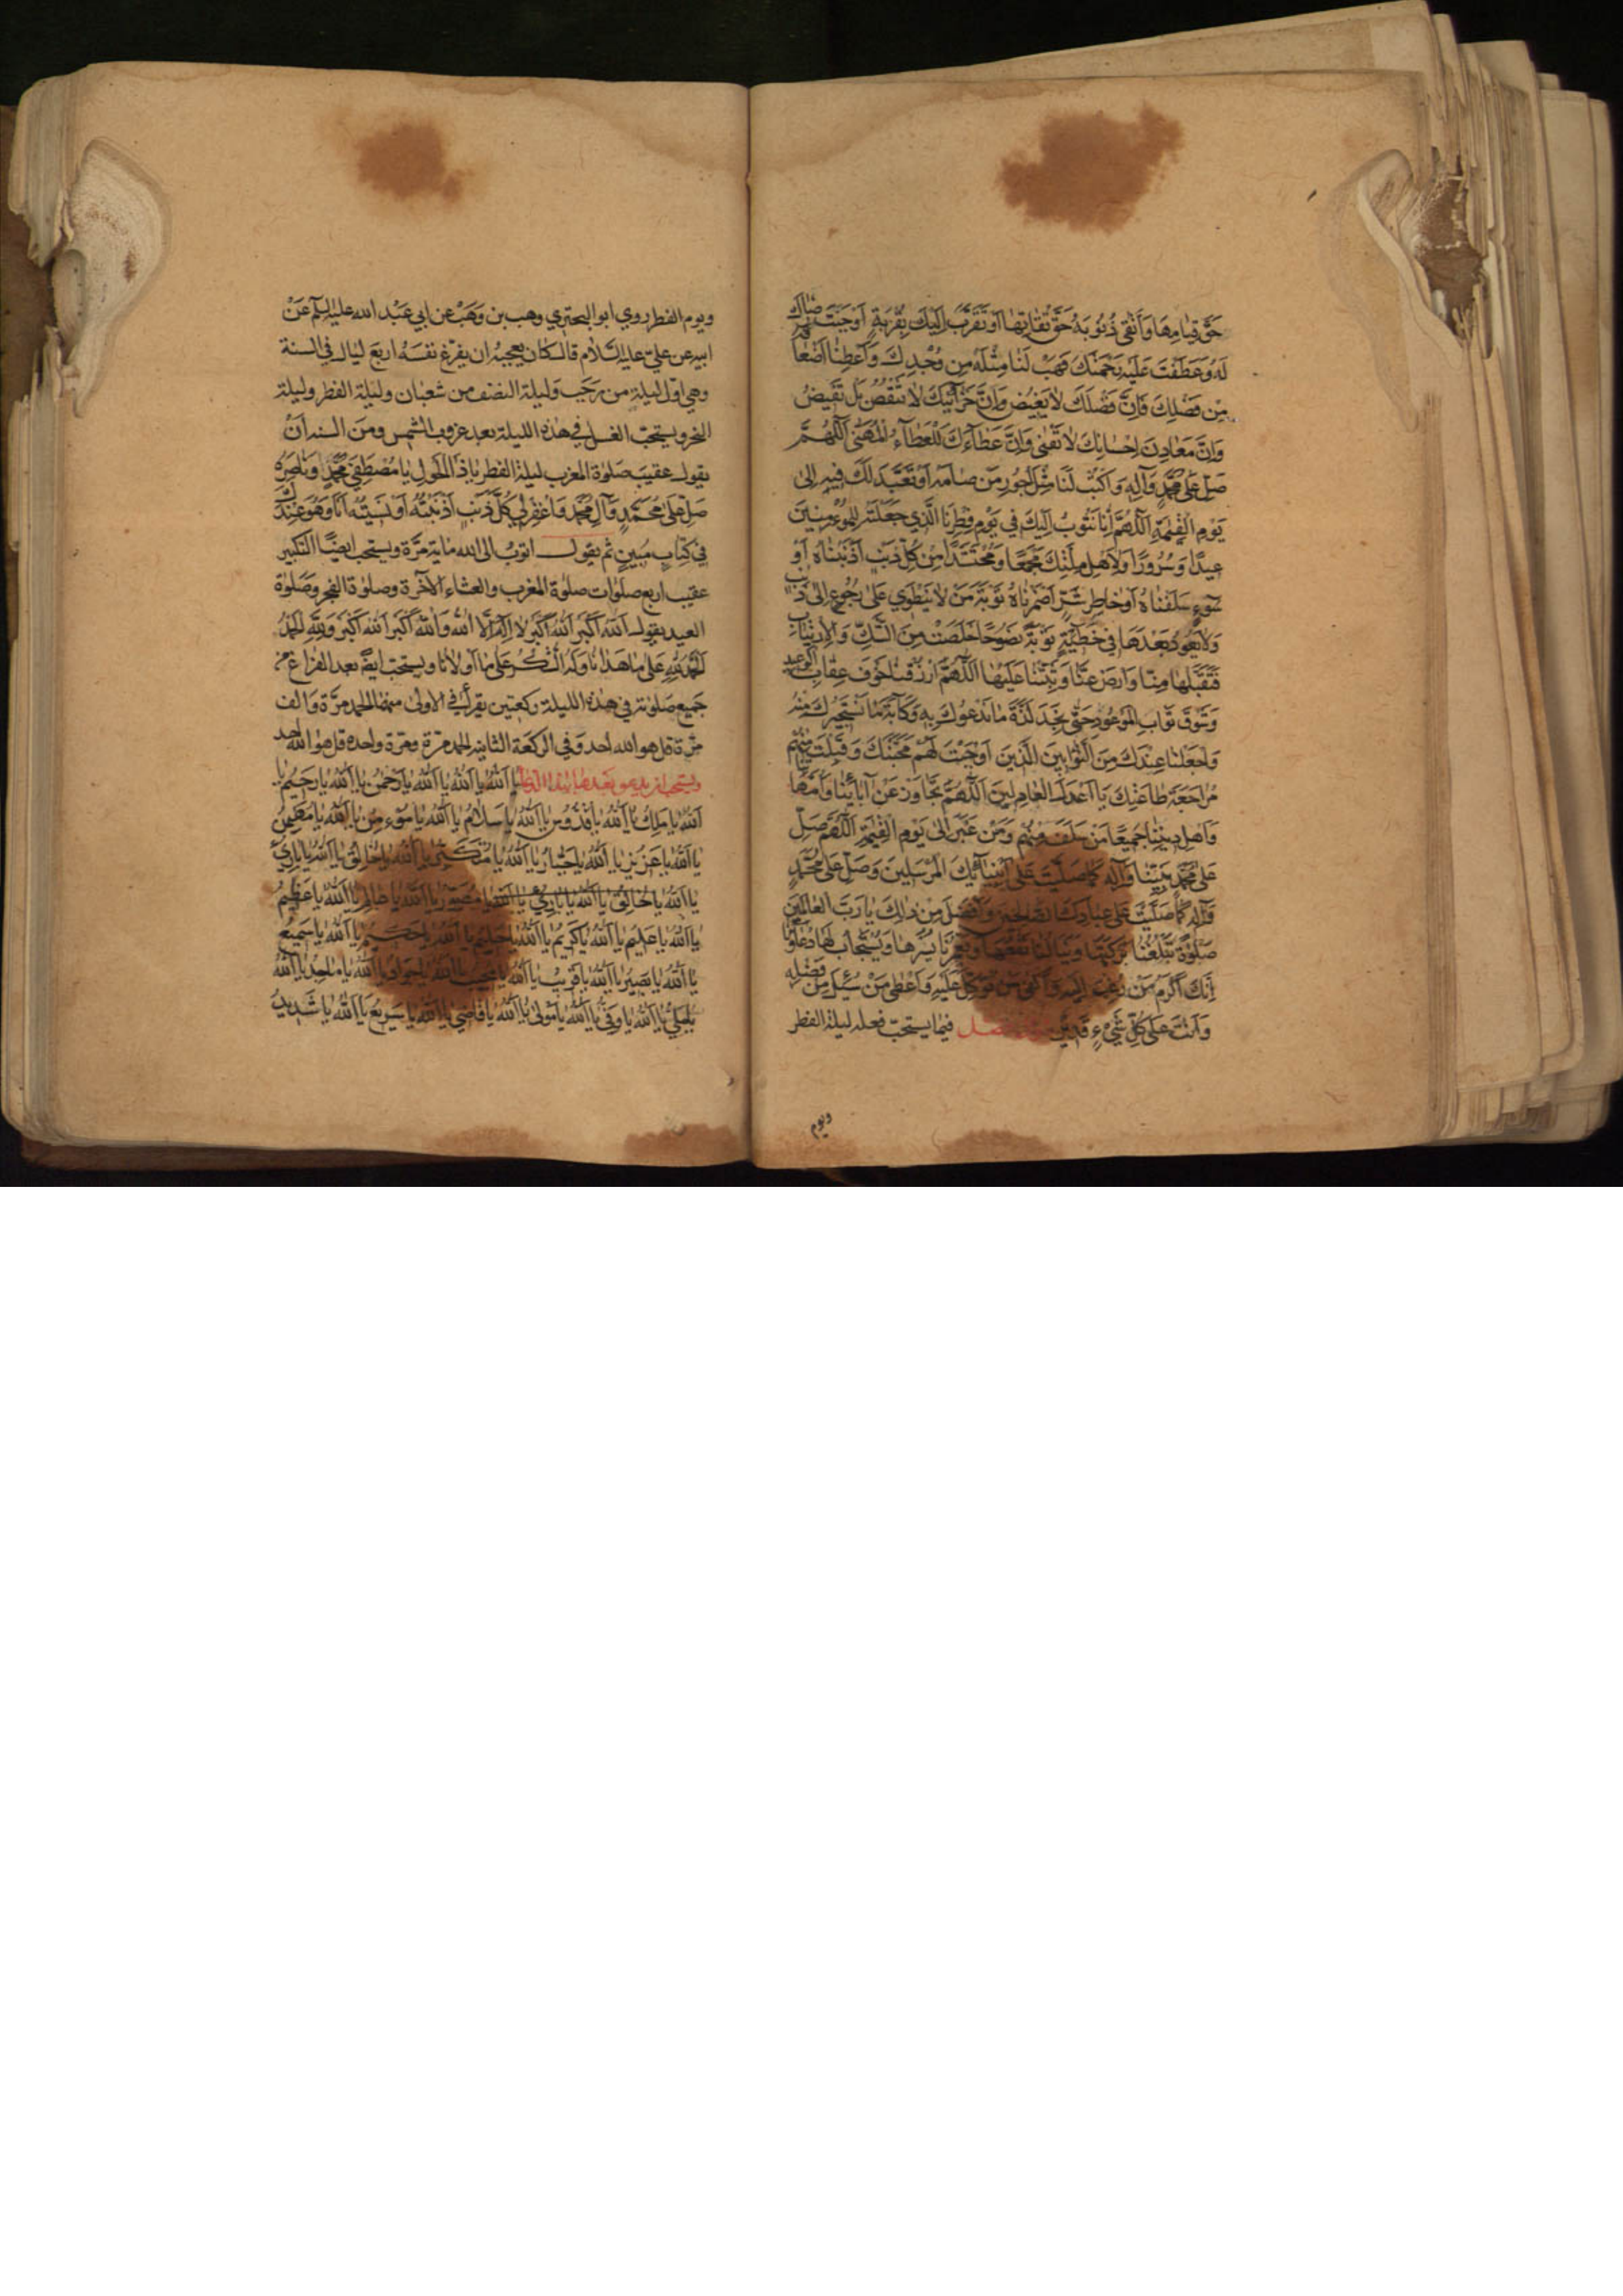 حَقَّ قِيَامِهَا وَاَتْقٰى ذُنُوبَهُ حَقَّ تُقَاتِهَا اَوْ تَقَرَّبَ اِلَيْكَ بِقُرْبَةٍ اَوْجَبَتْ رِضَاكَ
لَهُ وَعَطَفَتْ عَلَيْهِ بِرَحْمَتِكَ فَهَبْ لَنَا مِثْلَهُ مِنْ وُجْدِكَ وَاَعْطِنَا اَضْعَافَهُ
مِنْ فَضْلِكَ فَاِنَّ فَضْلَكَ لَا يَغِيضُ وَاِنَّ خَزَائِنَكَ لَا تَنْقُصُ بَلْ تَفِيضُ
وَاِنَّ مَعَادِنَ اِحْسَانِكَ لَا تَفْنٰى وَاِنَّ عَطَآءَكَ لَلْعَطَآءُ الْمُهَنّٰى اَللّٰهُمَّ
صَلِّ عَلٰى مُحَمَّدٍ وَآلِهِ وَاكْتُبْ لَنَا مِثْلَ اُجُورِ مَنْ صَامَهُ اَوْ تَعَبَّدَ لَكَ فِيهِ اِلٰى
يَوْمِ الْقِيٰمَةِ اَللّٰهُمَّ اِنَّا نَتُوبُ اِلَيْكَ فِي يَوْمِ فِطْرِنَا الَّذِي جَعَلْتَهُ لِلْمُؤْمِنِينَ
عِيدًا وَسُرُورًا وَلِاَهْلِ مِلَّتِكَ مَجْمَعًا وَمُحْتَشَدًا مِنْ كُلِّ ذَنْبٍ اَذْنَبْنَاهُ اَوْ
سُوءٍ سَلَفْنَاهُ اَوْ خَاطِرِ شَرٍّ اَضْمَرْنَاهُ تَوْبَةَ مَنْ لَا يَنْطَوِي عَلٰى رُجُوعٍ اِلٰى ذَنْبٍ
وَلَا يَعُودُ بَعْدَهَا فِي خَطِيئَةٍ تَوْبَةً نَصُوحًا خَلَصَتْ مِنَ الشَّكِّ وَالْاِرْتِيَابِ
فَتَقَبَّلْهَا مِنَّا وَارْضَ عَنَّا وَثَبِّتْنَا عَلَيْهَا اَللّٰهُمَّ ارْزُقْنَا خَوْفَ عِقَابِ الْوَعِيدِ
وَشَوْقَ ثَوَابِ الْمَوْعُودِ حَتّٰى نَجِدَ لَذَّةَ مَا نَدْعُوكَ بِهِ وَكَآبَةَ مَا نَسْتَجِيرُكَ مِنْهُ
وَاجْعَلْنَا عِنْدَكَ مِنَ التَّوَّابِينَ الَّذِينَ اَوْجَبْتَ لَهُمْ مَحَبَّتَكَ وَقَبِلْتَ مِنْهُمْ
مُرَاجَعَةَ طَاعَتِكَ يَا اَعْدَلَ الْعَادِلِينَ اَللّٰهُمَّ تَجَاوَزْ عَنْ آبَائِنَا وَاُمَّهَاتِنَا
وَاَهْلِ دِينِنَا جَمِيعًا مَنْ سَلَفَ مِنْهُمْ وَمَنْ غَبَرَ اِلٰى يَوْمِ الْقِيٰمَةِ اَللّٰهُمَّ صَلِّ
عَلٰى مُحَمَّدٍ نَبِيِّنَا وَآلِهِ كَمَا صَلَّيْتَ عَلٰى اَنْبِيَآئِكَ الْمُرْسَلِينَ وَصَلِّ عَلٰى مُحَمَّدٍ
وَآلِهِ كَمَا صَلَّيْتَ عَلٰى عِبَادِكَ الصَّالِحِينَ وَاَفْضَلَ مِنْ ذٰلِكَ يَا رَبَّ الْعَالَمِينَ
صَلٰوةً تَبْلُغُنَا بَرَكَتُهَا وَيَنَالُنَا نَفْعُهَا وَيَغْمُرُنَا يُسْرُهَا وَيُسْتَجَابُ لَهَا دُعَاؤُنَا
اِنَّكَ اَكْرَمُ مَنْ رُغِبَ اِلَيْهِ وَاَكْفٰى مَنْ تُوُكِّلَ عَلَيْهِ وَاَعْطٰى مَنْ سُئِلَ مِنْ فَضْلِهِ
وَاَنْتَ عَلٰى كُلِّ شَيْءٍ قَدِيرٌ فصل فيما يستحبّ فعله ليلة الفطر
ويوم
ويوم الفطر روي ابو البحتري وهب بن وَهَبْ عن ابي عَبْد الله عليه السلم عَنْ
ابيه عن عليّ عليه السّلام قال كان يعجبه ان يفرّغ نفسَهُ اربعَ ليَال في السنة
وهي اوّل ليلةٍ من رَجَب وَليلة النصف من شعبان وليلة الفطر وليلة
النحر ويستحبّ الغسل في هٰذه الليلة بعد غروب الشمس ومنَ السنه اَنْ
يقول عقيبَ صَلوٰة المغرب ليلة الفطر يَا ذَا الْحَوْلِ يَا مُصْطَفِيَ مُحَمَّدٍ وَنَاصِرَهُ
صَلِّ عَلٰى مُحَمَّدٍ وَآلِ مُحَمَّدٍ وَاغْفِرْ لِي كُلَّ ذَنْبٍ اَذْنَبْتُهُ اَوْ نَسَيْتُهُ اَنَا وَهُوَ عِنْدَكَ
فِي كِتَابٍ مُبِينٍ ثم يقول اتوبُ الى الله مائة مَرّة ويستحب ايضًا التكبير
عقيب اربع صلوات صلوٰة المغرب والعشاء الآخرة وصلوٰة الفجر وصَلوٰة
العيد يقول اَللّٰهُ اَكْبَرُ اَللّٰهُ اَكْبَرُ لَا اِلٰهَ اِلَّا اللّٰهُ وَاللّٰهُ اَكْبَرُ اَللّٰهُ اَكْبَرُ وَلِلّٰهِ الْحَمْدُ
اَلْحَمْدُ لِلّٰهِ عَلٰى مَا هَدَانَا وَلَهُ الشُّكْرُ عَلٰى مَا اَوْلَانَا ويستحب ايضًا بعد الفراغ من
جَميع صَلوٰته في هذه الليلة ركعتين يقرأ في الاولىٰ منهما الحمد مرّة وَالف
مرّة قل هو الله احد وَفي الركعَة الثانية الحمد مرّة ومرّة واحده قل هو الله احد
ويستحب ان يدعو بعدها بهذا الدعا يَا اَللّٰهُ يَا اَللّٰهُ يَا اَللّٰهُ يَا رَحْمٰنُ يَا اَللّٰهُ يَا رَحِيمُ يَا
اَللّٰهُ يَا مَلِكُ يَا اَللّٰهُ يَا قُدُّوسُ يَا اَللّٰهُ يَا سَلَامُ يَا اَللّٰهُ يَا مُؤْمِنُ يَا اَللّٰهُ يَا مُهَيْمِنُ
يَا اَللّٰهُ يَا عَزِيزُ يَا اَللّٰهُ يَا جَبَّارُ يَا اَللّٰهُ يَا مُتَكَبِّرُ يَا اَللّٰهُ يَا خَالِقُ يَا اَللّٰهُ يَا بَارِئُ
يَا اَللّٰهُ يَا خَالِقُ يَا اَللّٰهُ يَا بَارِئُ يَا اَللّٰهُ يَا مُصَوِّرُ يَا اَللّٰهُ يَا عَالِمُ يَا اَللّٰهُ يَا عَظِيمُ
يَا اَللّٰهُ يَا عَلِيمُ يَا اَللّٰهُ يَا كَرِيمُ يَا اَللّٰهُ يَا حَلِيمُ يَا اَللّٰهُ يَا حَكِيمُ يَا اَللّٰهُ يَا سَمِيعُ
يَا اَللّٰهُ يَا بَصِيرُ يَا اَللّٰهُ يَا قَرِيبُ يَا اَللّٰهُ يَا مُجِيبُ يَا اَللّٰهُ يَا جَوَادُ يَا اَللّٰهُ يَا مَاجِدُ يَا اَللّٰهُ
يَا عَلِيُّ يَا اَللّٰهُ يَا وَفِيُّ يَا اَللّٰهُ يَا مَوْلٰى يَا اَللّٰهُ يَا قَاضِي يَا اَللّٰهُ يَا سَرِيعُ يَا اَللّٰهُ يَا شَدِيدُ